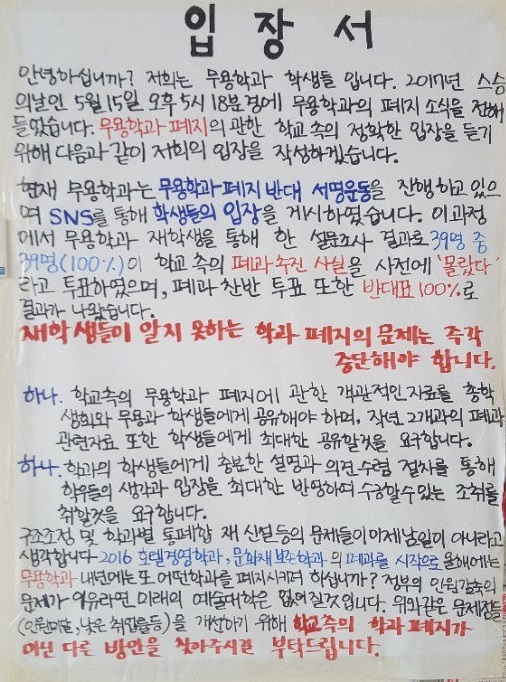 입장서
안녕하십니까? 저희는 무용학과 학생들 입니다. 2017년 스승
의날인 5월 15일 오후 5시 18분경에 무용학과의 폐지 소식을 전해
들었습니다. 무용학과 폐지의 관한 학교 측의 정확한 입장을 듣기
위해 다음과 같이 저희의 입장을 작성하겠습니다.
현재 무용학과는 무용학과 폐지 반대 서명운동을 진행하고 있으
며 SNS를 통해 학생들의 입장을 게시하였습니다. 이 과정
에서 무용학과 재학생을 통해 한 설문조사 결과로 39명 중
39명(100%)이 학교 측의 폐과 추진 사실을 사전에 '몰랐다'
라고 투표하였으며, 폐과 찬반 투표 또한 반대표 100%로
결과가 나왔습니다.
재학생들이 알지 못하는 학과 폐지의 문제는 즉각
중단해야 합니다.
하나. 학교측의 무용학과 폐지에 관한 객관적인 자료를 총학
생회와 무용과 학생들에게 공유해야 하며, 작년 2개과의 폐과
관련자료 또한 학생들에게 최대한 공유할것을 요구합니다.
하나. 학과의 학생들에게 충분한 설명과 의견수렴 절차를 통해
학우들의 생각과 입장을 최대한 반영하며 수긍할수있는 조취를
취할것을 요구합니다.
구조조정 및 학과별 통폐합 재 신설등의 문제들이 이제 남일이 아니라고
생각합니다 2016 호텔경영학과, 문화재보존학과의 폐과를 시작으로 올해에는
무용학과 내년에는 또 어떤학과를 폐지시키려 하십니까? 정부의 인원감축의
문제가 이유라면 미래의 예술대학은 없어질것입니다. 위와같은 문제점들
(인원미달, 낮은 취업률등)을 개선하기 위해 학교측의 학과 폐지가
아닌 다른 방안을 찾아주시길 부탁드립니다.